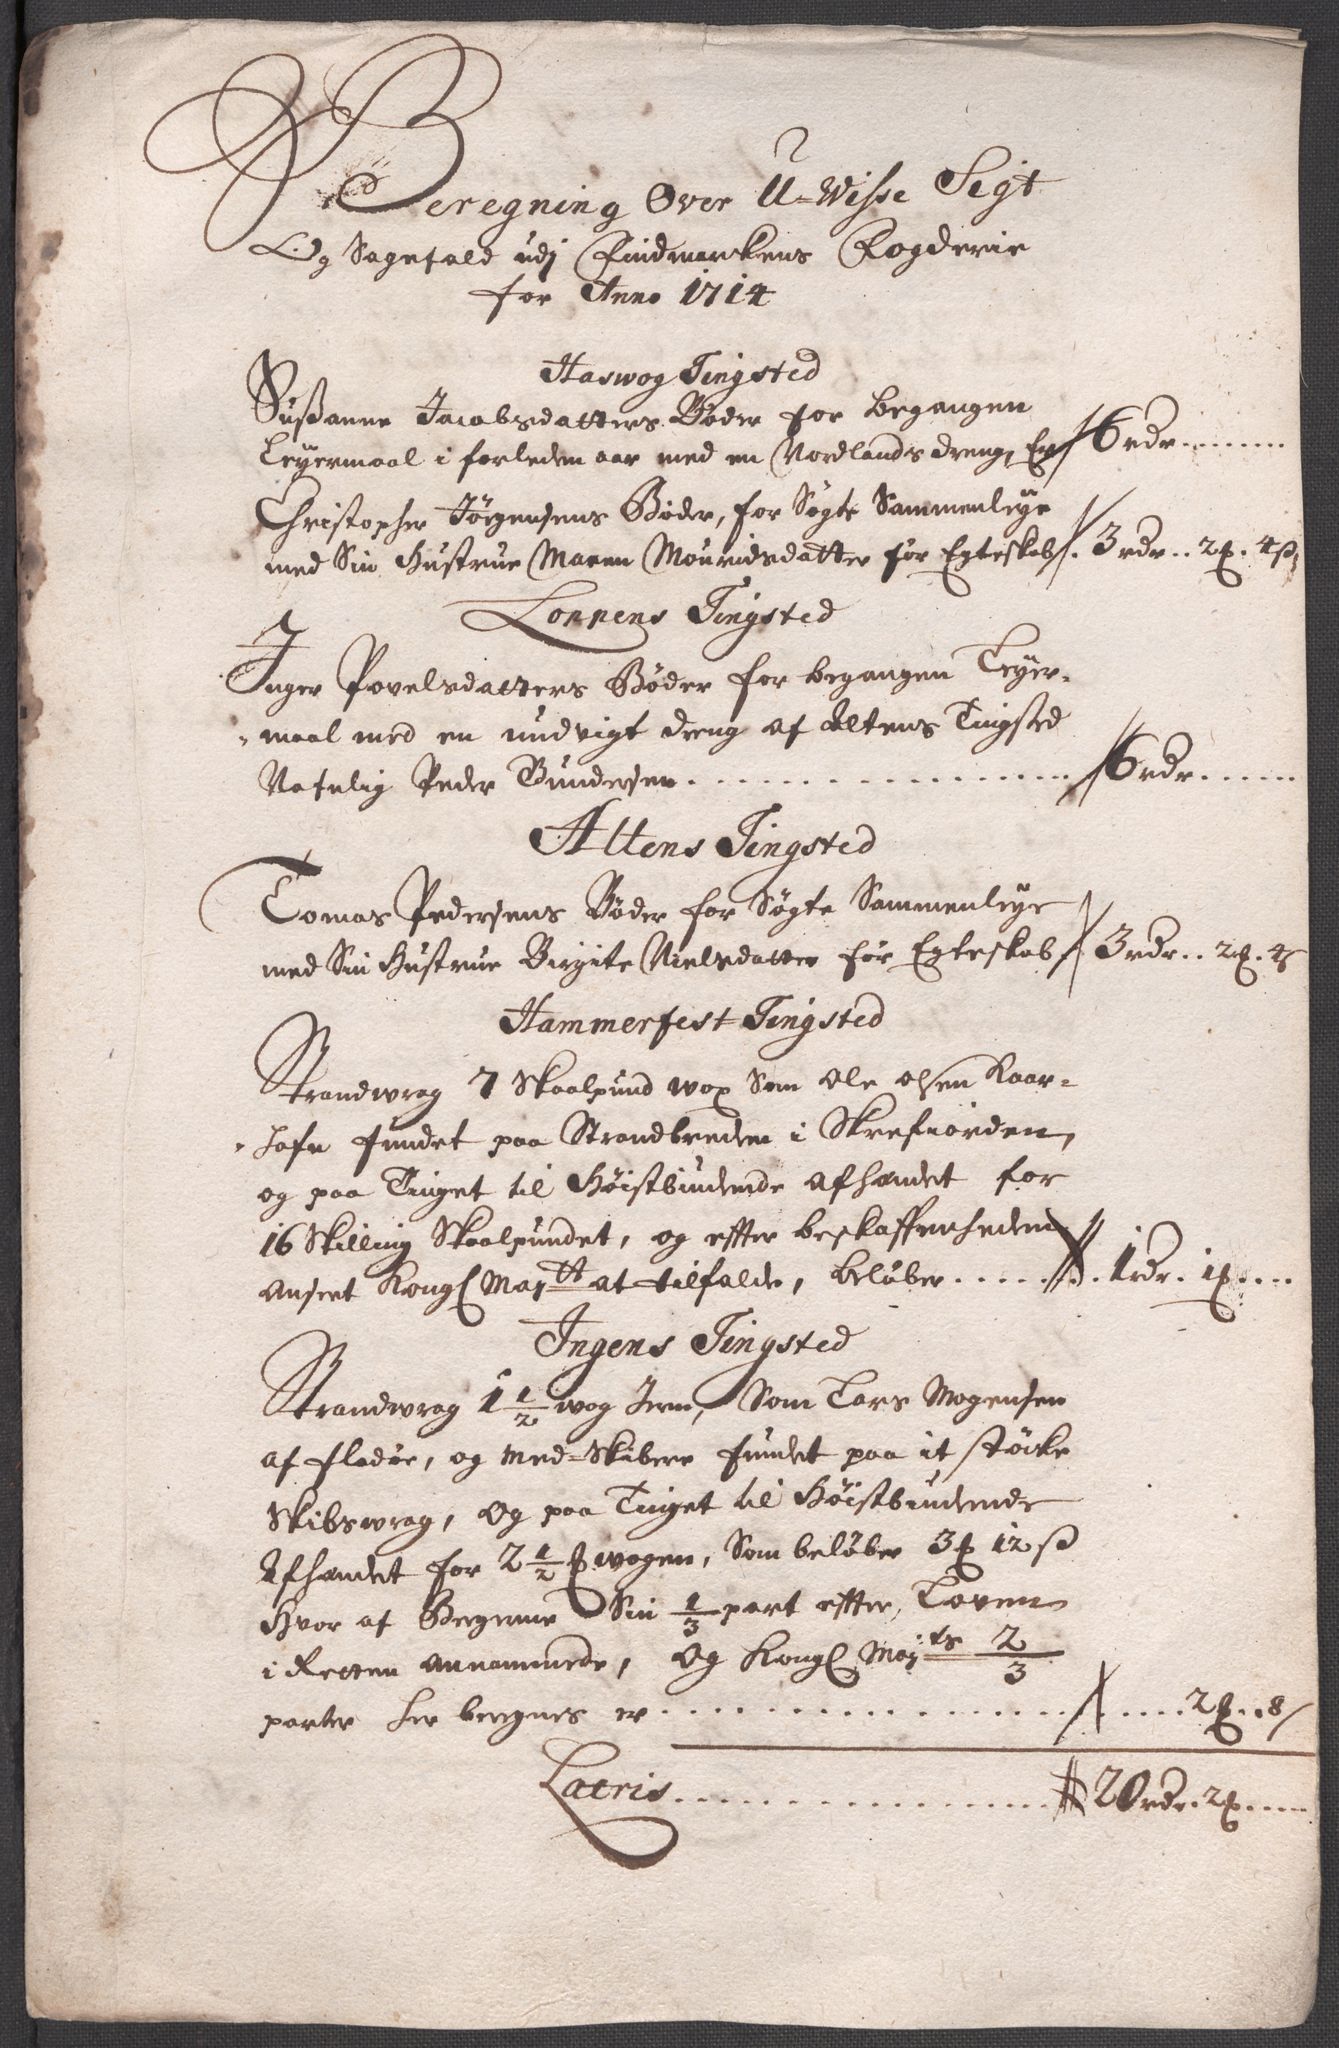 Beregning Over U-Wisse Sigt
Og Sagefald udj Findmarkens Fogderie
for Anno 1714
Haswog Tingsted
Sußanne Jacobsdatters Bøder for begangen
Leyermaal i forleden aar med en Nordlands dreng, Er 6 rdr
Christopher Jörgensens Bøder, for Søgte Sammenleye
med Sin Hustrue Maren Mouridsdatter før Egteskab 3 rdr 2 ₰ 4 ß
Loppens Tingsted
Inger Povelsdatters Bøder for begangen Leyer-
maal med en undvigt dreng af Altens Tingsted
Nafnlig Peder Gundersen 6 rdr
Altens Tingsted
Tomas Pedersens Bøder for Søgte Sammenleye
med Sin Hustrue Birgite Nielsdatter før Egteskab 3 rdr 2 ₰ 4 ß
Hammerfest Tingsted
Strandwrag 7 Skaalpund wox Som Ole Olsen Kaar-
hafn fundet paa Strandbreden i Skrefiorden,
og paa Tinget til Høistbiudende afhandet for
16 Skilling Skaalpundet, og effter beskaffenheden
anseet Kongl Maytt at tilfalde, beløber 1 rdr 1 ₰
Ingens Tingsted
Strandwrag 1 1/2 wog Jern, Som Lars Mogensen
af fladøe, og Med-Skibere fundet paa it støcke
Skibswrag, Og paa Tinget til Høistbiudende
Afhandet for 2 1/2 ₰ wogen, Som beløber 3 ₰ 12 ß
Hvor af Bergerne Sin 1/3 part effter Loven
i Retten annammede, Og Kongl Mayts 2/3
parter her beregnes er 2 ₰ 8 ß
Lateris 20 rdr 2 ₰